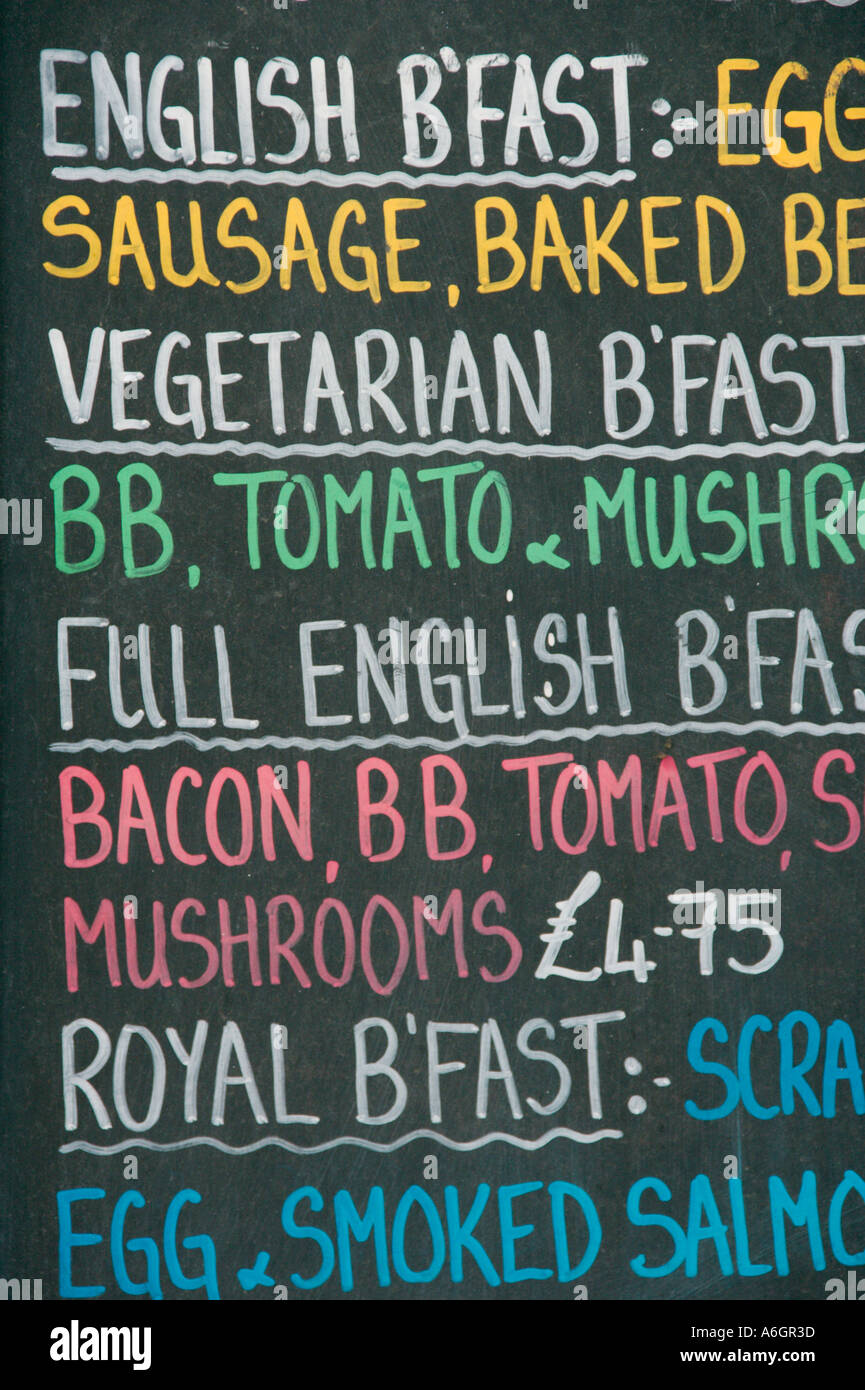 ENGLISH B'FAST:- EGG
SAUSAGE, BAKED BE
VEGETARIAN B'FAST
BB, TOMATO & MUSHRO
FULL ENGLISH B'FAS
BACON, BB, TOMATO, S
MUSHROOMS £4-75
ROYAL B'FAST:- SCRA
EGG & SMOKED SALMO
alamy
Image ID: A6GR3D
www.alamy.com